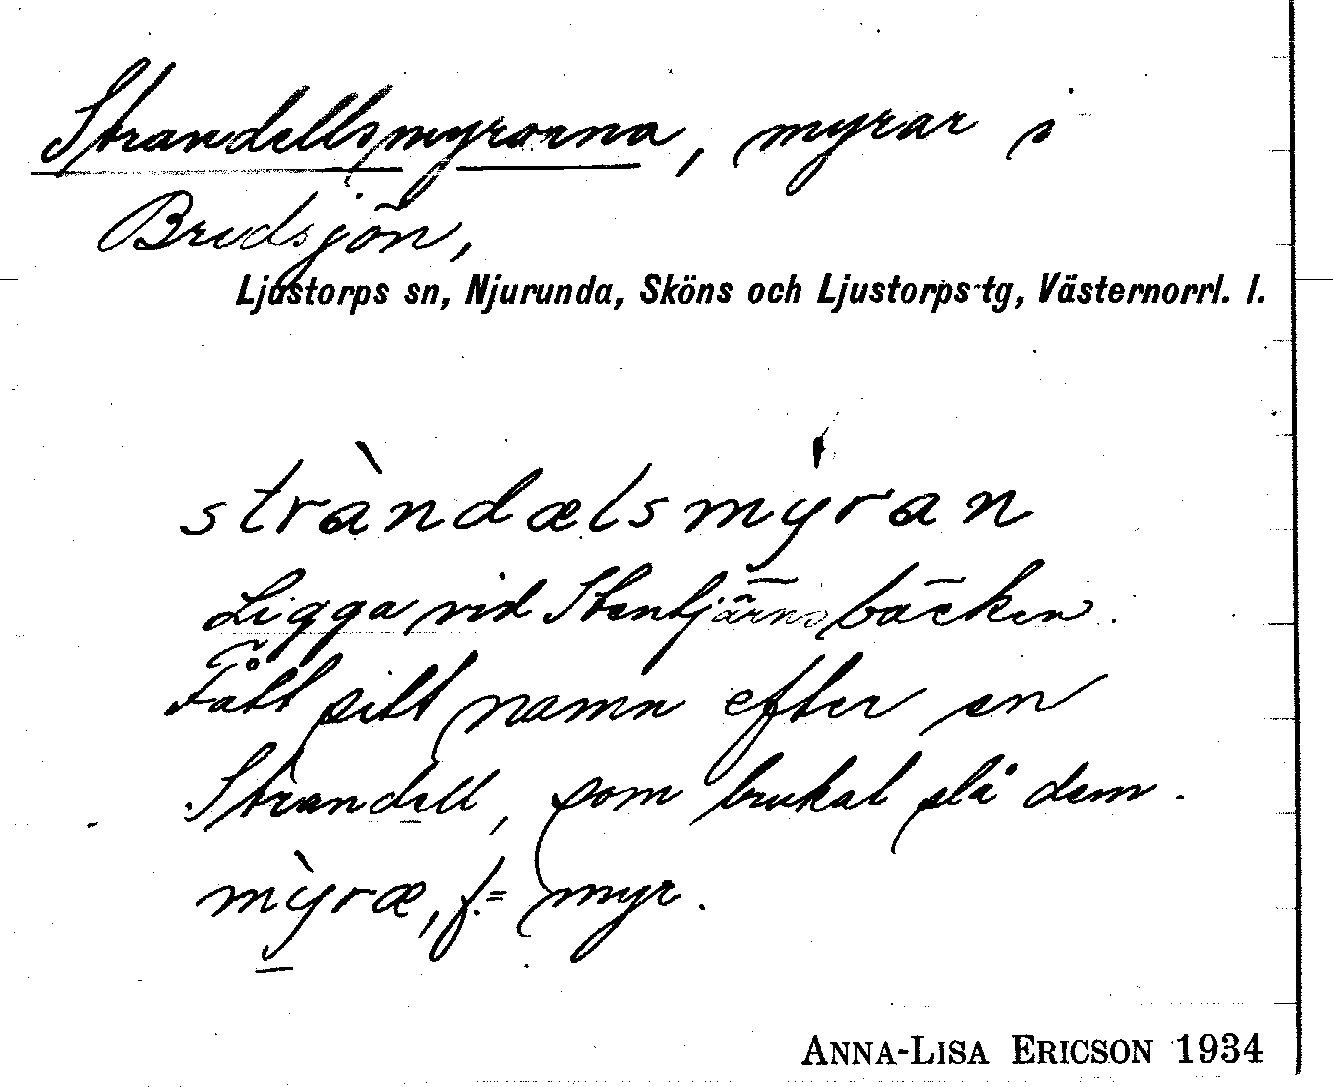 Strandellsmyrorna, myrar i
Bredsjön,
Ljustorps sn, Njurunda, Sköns och Ljustorps tg, Västernorrl. l.
stràndælsmỳran
Ligga vid Stentjärnsbäcken.
Fått sitt namn efter en
Strandell, som brukat slå dem.
mỳræ, f. = myr.
ANNA-LISA ERICSON 1934